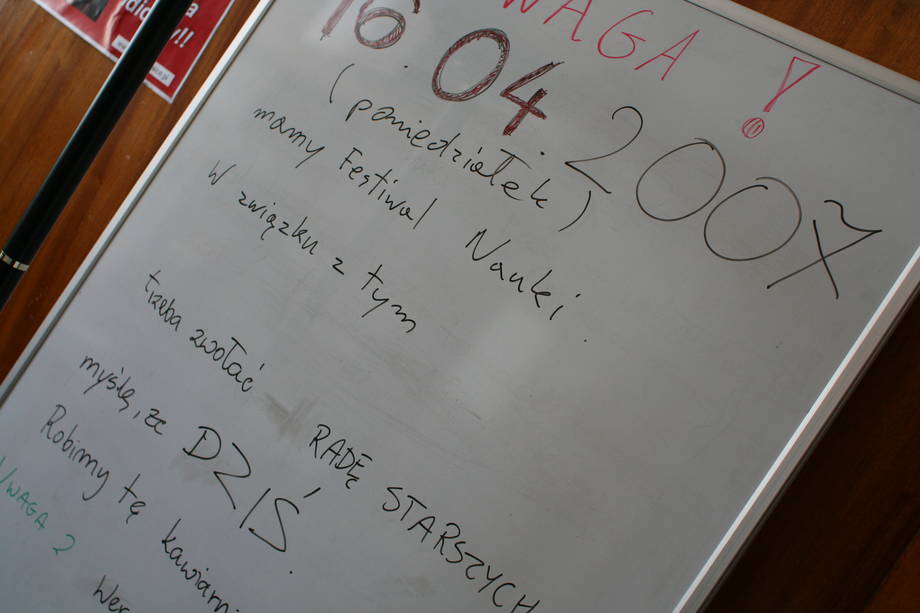 WAGA !
16.04.2007
(poniedziałek)
mamy Festiwal Nauki.
W związku z tym
trzeba zwołać RADĘ STARSZYCH
myślę, że DZIŚ.
Robimy tę kawiarni
UWAGA 2